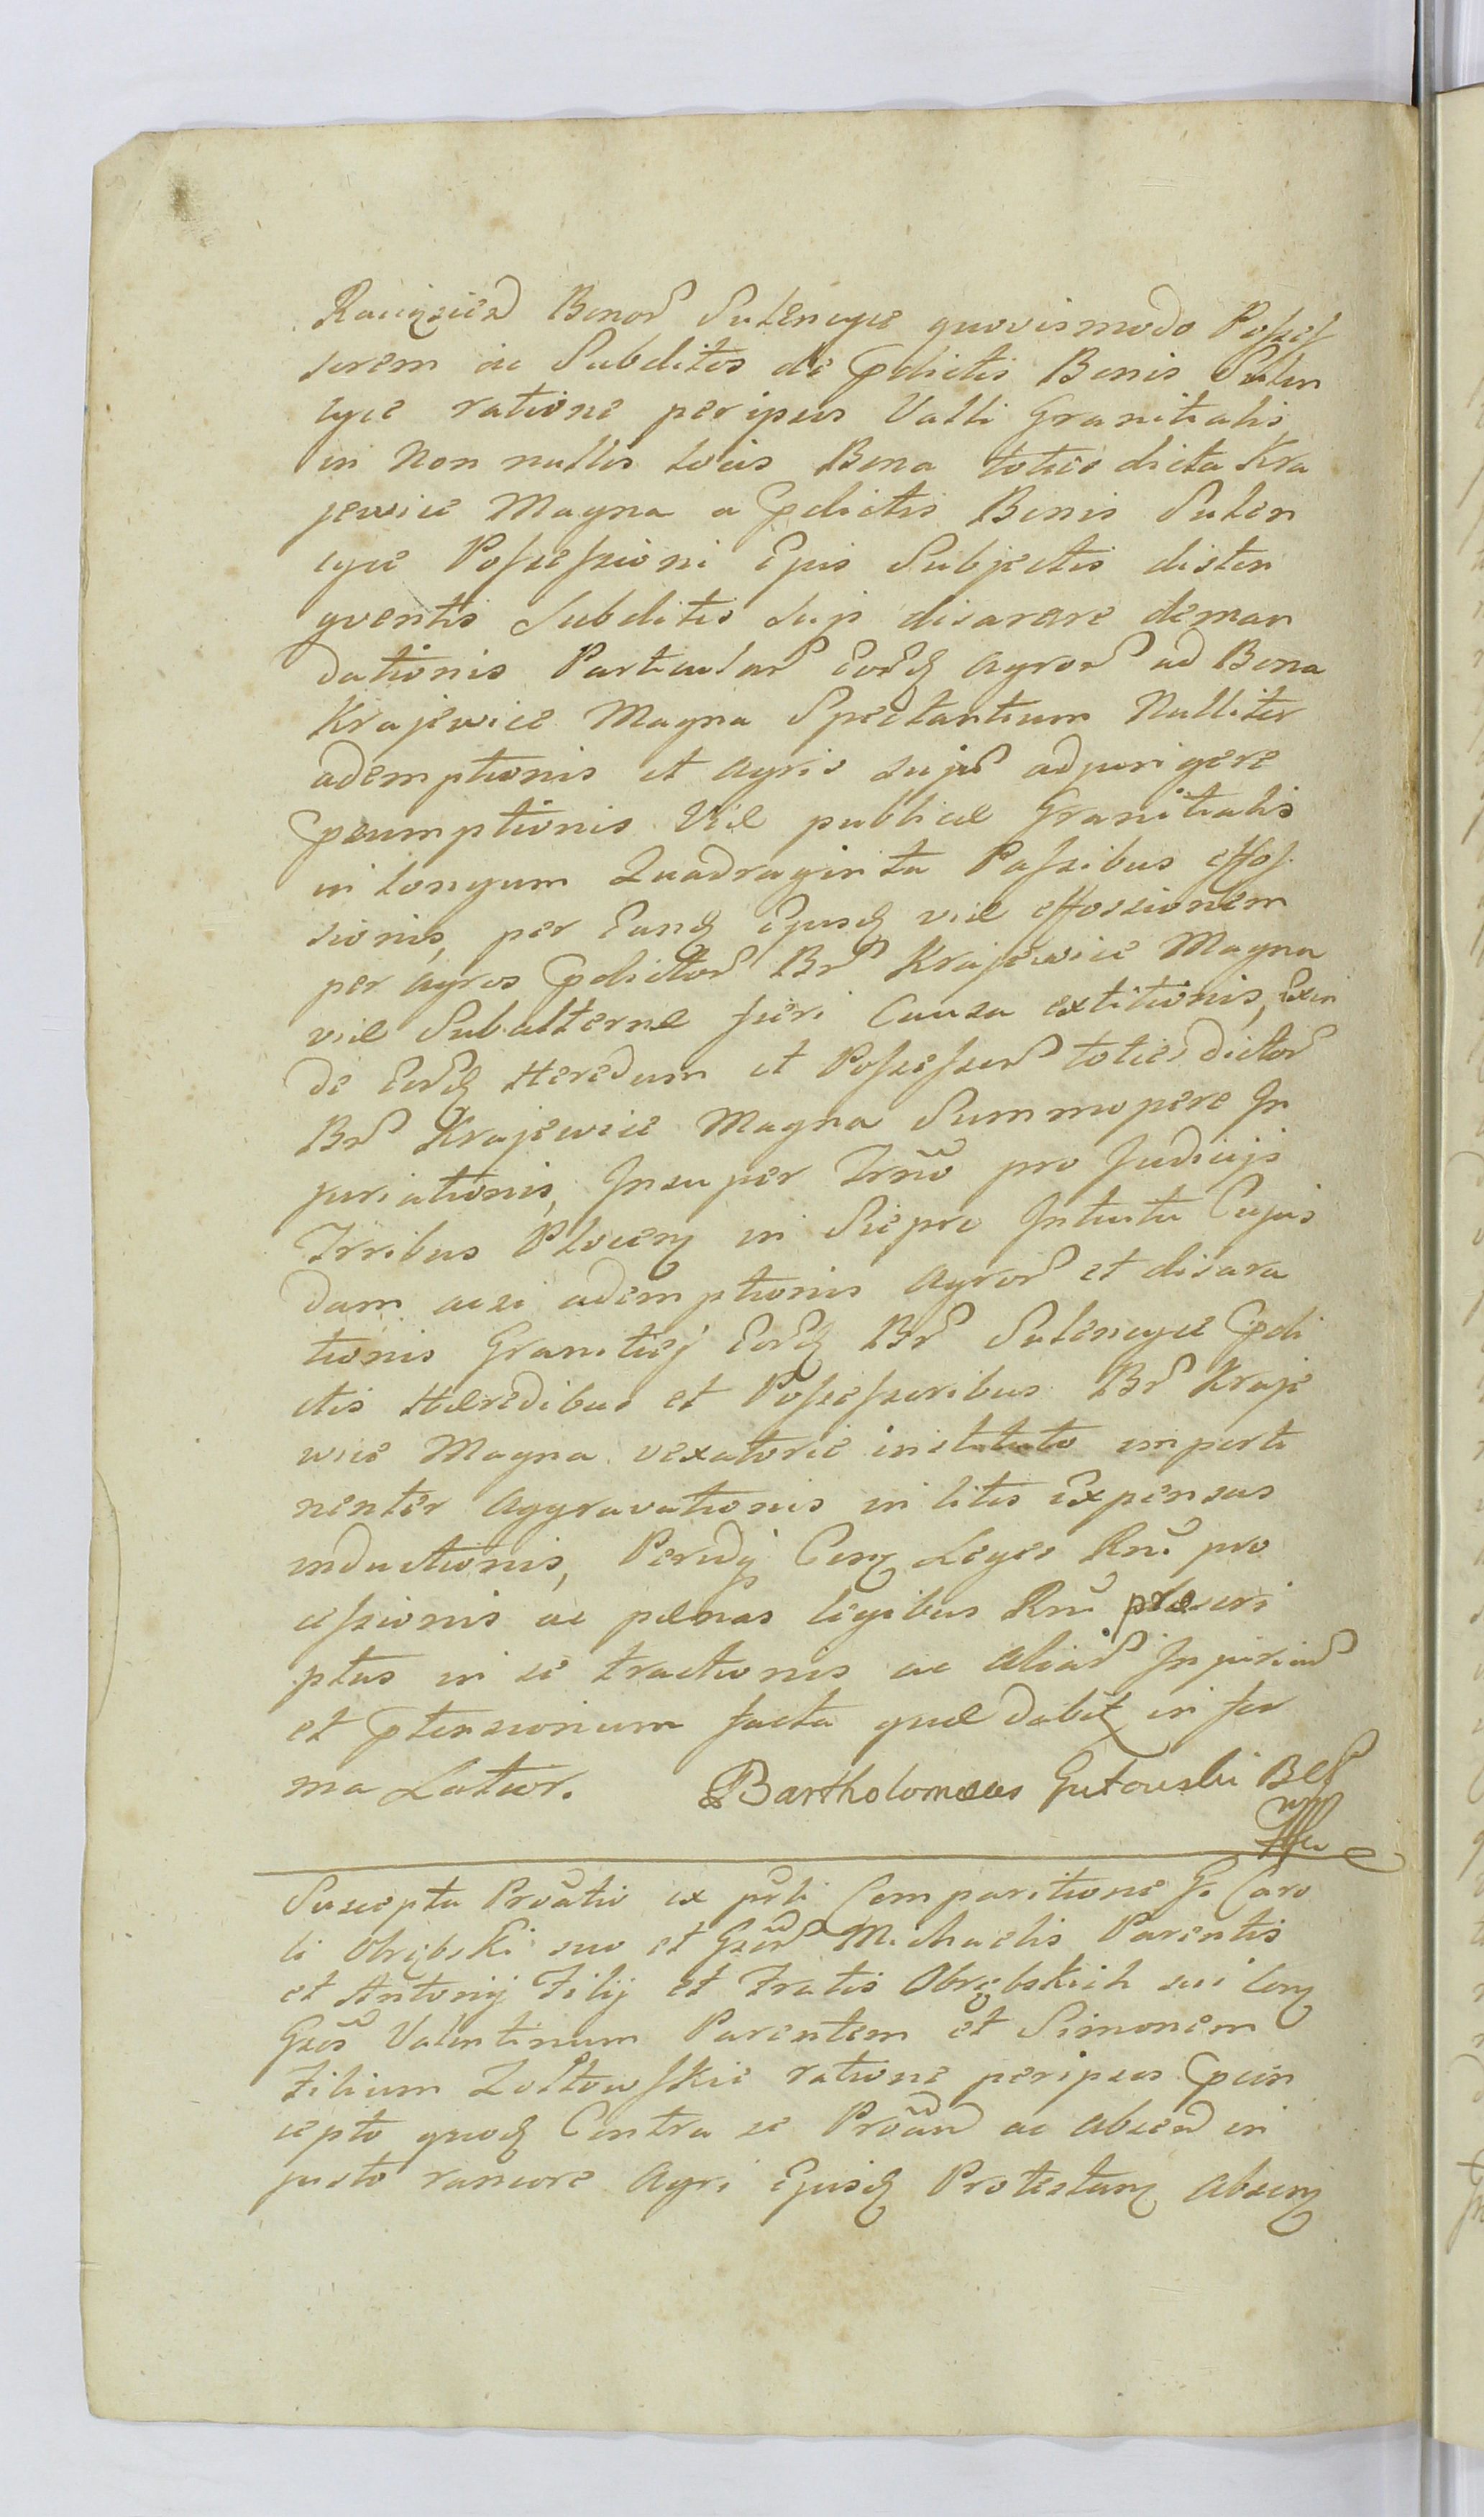 Raciążied Bonor Sulencyce quovismodo Possef
sorem ac Subditos de Pdictis Bonis Sulen
cyce ratione per ipsos Valli Granitialis
in Non nullis locis Bona toties dicta Kra
jewice Magna a Pdictis Bonis Sulen
cyce Possessioni Ejus Subjectis distin
gventis Subditis suis disarare deman
dationis Particular Eordq Agror ad Bona
Krajewice Magna Spectantium Nulliter
ademptionis et Agris suis adjurigere
Psumptionis Viæ publicæ Granitialis
in longum Quadraginta Passibus effos
sionis, per Eandq Ejusdq viæ effossionem
per Agros Pdictor Br Krajewice Magna
viæ Subalternæ fieri Causa extitionis, Exin
de Eordq Heredum et Possessor toties dictor
Br Krajewice Magna Summopere In
juriationis, Insuper Trno pro Judicijs
Trribus Plocen in Sieprc Intuitu Cujus
dam acsi ademptionis Agror et disara
tionis Granitiej Eordq Br Sulencyce Pdi
ctis Hæredibus et Possessoribus Br Kraje
wice Magna vexatorie instituto imperti
nenter Aggravationis in litis Expensas
inductionis, Contra Leges Rni pro
cessionis ac pænas legibus Rni præscri
ptas in se tractionis ac aliar Injuriar
et Ptensionum facta quæ dabit in for
ma Latior. Bartholomæus Gutowski
Suscepta Proatio ex prli Comparitione G. Caro
li Obrębski suo et Gsor Michaelis Parentis
et Antonij Filij et Fratis Obrębskich sui
Gsos Valentinum Parentem et Simonem
Filium Zołtowskie ratione per ipsos Pcon
cepto quodq Contra se Proan ac absen in
justo rancore Agri Ejusdq Protestan absen